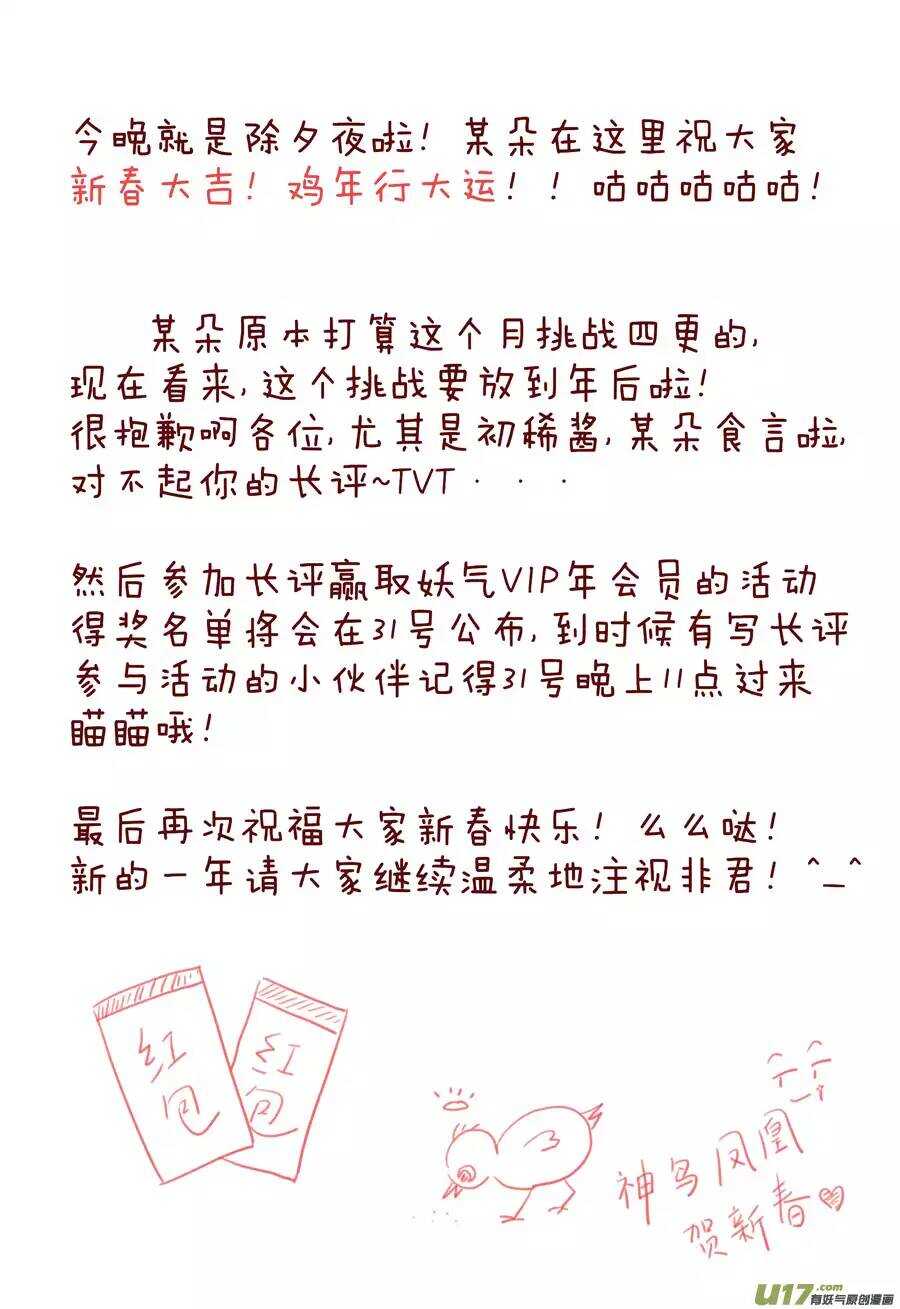 今晚就是除夕夜啦！某朵在这里祝大家
新春大吉！鸡年行大运！！咕咕咕咕咕！
某朵原本打算这个月挑战四更的,
现在看来,这个挑战要放到年后啦！
很抱歉啊各位,尤其是初稀酱,某朵食言啦,
对不起你的长评~TVT···
然后参加长评赢取妖气VIP年会员的活动
得奖名单将会在31号公布,到时候有写长评
参与活动的小伙伴记得31号晚上11点过来
瞄瞄哦！
最后再次祝福大家新春快乐！么么哒！
新的一年请大家继续温柔地注视非君！^_^
红包
红包
神鸟凤凰
贺新春
U17.com
有妖气原创漫画